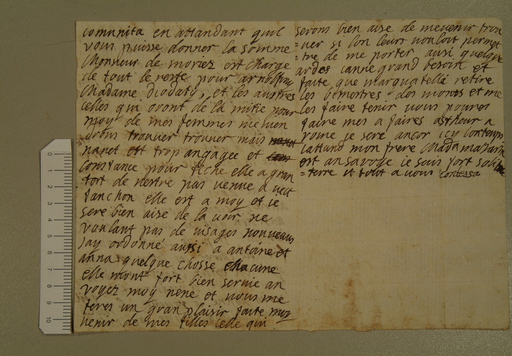 comunita en attandant quil
vous puisse donner la somme
lhonneur de moriez est charge
de tout le reste pour
Madame diodati, et les austres
celles qui oront de la mitie pour
moy de mes femmes
trouver trouver mais
est trop angagee et
Constance pour fiche elle a gran
tort de nestre pas venue a veu
fanchon elle est a moy et je
sere bien aise de la voir ne
voulant pas de visages nouveaux
Jay ordonne aussi a antoine et
anna quelque chosse chacune
elle mont fort bien servie an
voyez moy nene et vous me
feres un gran plaisir faite
venir de mes filles celle qui
serons bien aise de me venir trou
=ver si lon leurs voulout permet
=tre de me porter ausi quelque
ardes janne grand besoin et
faite que marquatelli retire
les et me
les faire tenir vous pouves
faire mes a faires astheur a
je sere ancor icy lontemps
mon frere Madama
est an savoye je suis fort soli
=tere et tout a vous Contessa